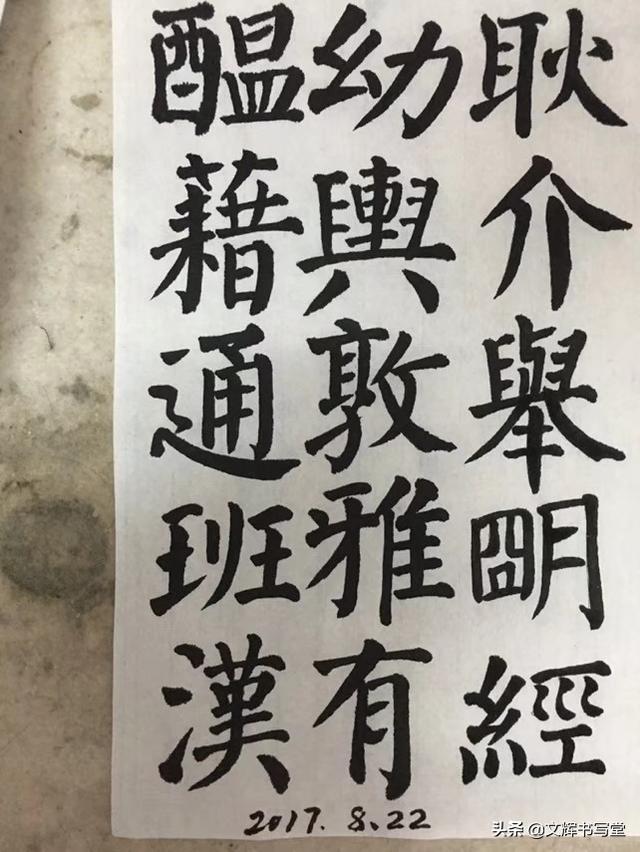 耿介舉朙經
幼輿敦雅有
醖藉通班漢
2017.8.22
头条 @文辉书写堂